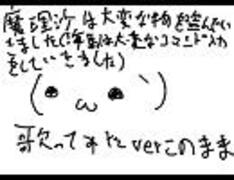 魔理沙は大変な物を盗んでい
きました(実は大変なコマンド入力
をしていきました)
(・ω・｀)
歌ってみた verこのまま